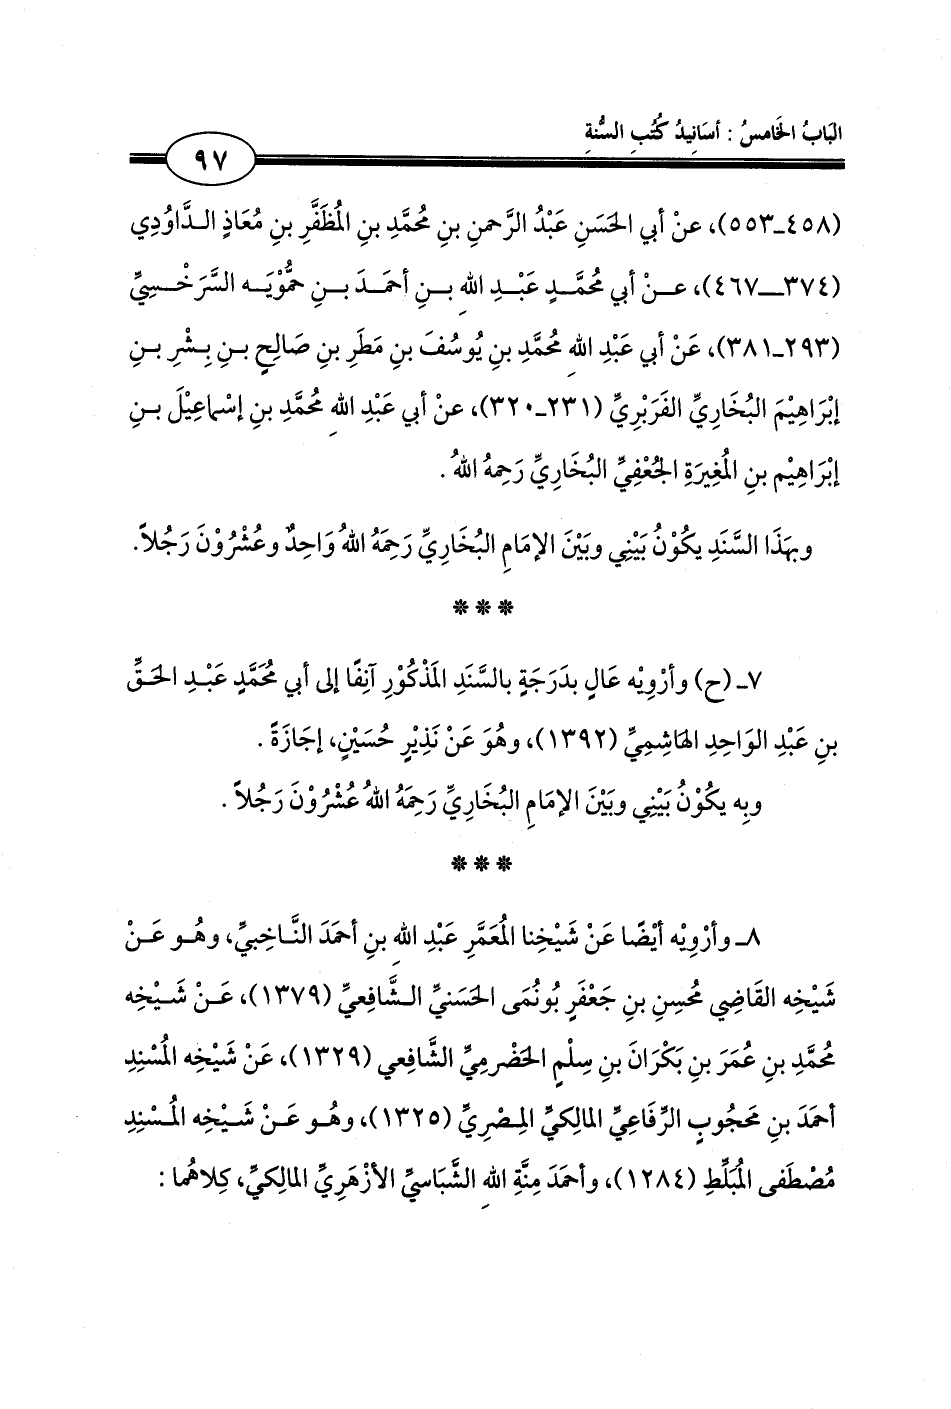 البَابُ الخَامسُ : أسَانِيدُ كُتُبِ السُّنةِ
٩٧
(٤٥٨ـ٥٥٣)، عنْ أبي الحَسَنِ عَبْدُ الرَّحمنِ بنِ مُحمَّدِ بنِ المُظَفَّرِ بنِ مُعَاذٍ الـدَّاوُدِي
(٣٧٤ــ٤٦٧)، عــنْ أبي مُحمَّــدٍ عَبْــدِ اللهِ بــنِ أحمَــدَ بــنِ حمُّوْيَــه السَّرَخْــسِيِّ
(٢٩٣ـ٣٨١)، عَنْ أبي عَبْدِ اللهِ مُحمَّدِ بنِ يُوسُفَ بنِ مَطَرِ بنِ صَالِحِ بـنِ بِـشْرِ بـنِ
إبْرَاهِيْمَ البُخَارِيِّ الفَرَبْرِيِّ (٢٣١ـ٣٢٠)، عنْ أبي عَبْدِ اللهِ مُحمَّدِ بنِ إسْماعِيْلَ بـنِ
إبْرَاهِيْم بنِ المُغِيرَةِ الجُعْفِيِّ البُخَارِيِّ رَحِمهُ اللهُ .
وبهَذَا السَّنَدِ يكُوْنُ بَيْنِي وبَيْنَ الإمَامِ البُخَارِيِّ رَحِمَهُ اللهُ وَاحِدٌ وعُشْرُوْنَ رَجُلاً.
***
٧ـ (ح) وأرْوِيْه عَالٍ بدَرَجَةٍ بالسَّنَدِ المَذْكُوْرِ آنِفًا إلى أبي مُحَمَّدٍ عَبْـدِ الحَـقِّ
بنِ عَبْدِ الوَاحِدِ الهَاشِمِيِّ (١٣٩٢)، وهُوَ عَنْ نَذِيْرِ حُسَيْنٍ، إجَازَةً .
وبِه يكُوْنُ بَيْنِي وبَيْنَ الإمَامِ البُخَارِيِّ رَحِمَهُ اللهُ عُشْرُوْنَ رَجُلاً .
***
٨ـ وأرْوِيْه أيْضًا عَنْ شَيْخِنا المُعَمَّرِ عَبْدِ اللهِ بنِ أحمَدَ النَّـاخِبيِّ، وهُـو عَـنْ
شَيْخِه القَاضِي مُحسِنِ بنِ جَعْفَرٍ بُونُمَى الحَسَنيِّ الـشَّافِعيِّ (١٣٧٩)، عَـنْ شَـيْخِه
مُحمَّدِ بنِ عُمَرَ بنِ بَكْرَانَ بنِ سِلْمٍ الحَضْرمِيِّ الشَّافِعي (١٣٢٩)، عَنْ شَيْخِه المُسْنِدِ
أحمَدَ بنِ مَحجُوبٍ الرِّفَاعِيِّ المَالِكيِّ المِصْرِيِّ (١٣٢٥)، وهُـو عَـنْ شَـيْخِه المُـسْنِدِ
مُصْطَفى المُبَلِّطِ (١٢٨٤)، وأحمَدَ مِنَّةِ اللهِ الشَّبَاسيِّ الأزْهَرِيِّ المَالِكيِّ، كِلاهُما :